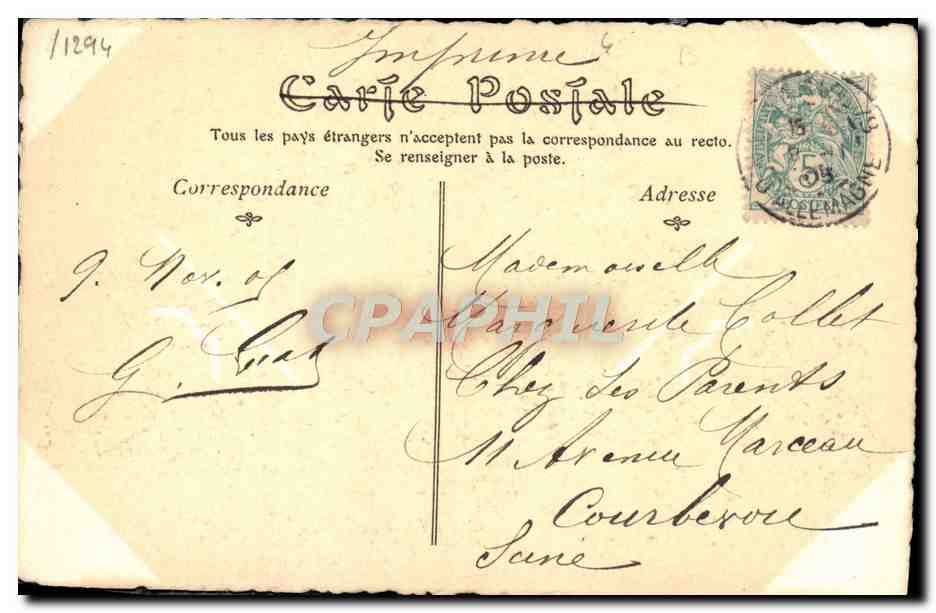 /1294
Imprimé
Carte Postale
Tous les pays étrangers n'acceptent pas la correspondance au recto.
Se renseigner à la poste.
Correspondance
Adresse
9. Nov. 05
G.
Mademoiselle
Marguerite Collet
Chez Ses Parents
11 Avenue Marceau
Courbevoie
Seine
PARIS 19
15
05
D'ALLEMAGNE
5
POSTES
CPAPHIL